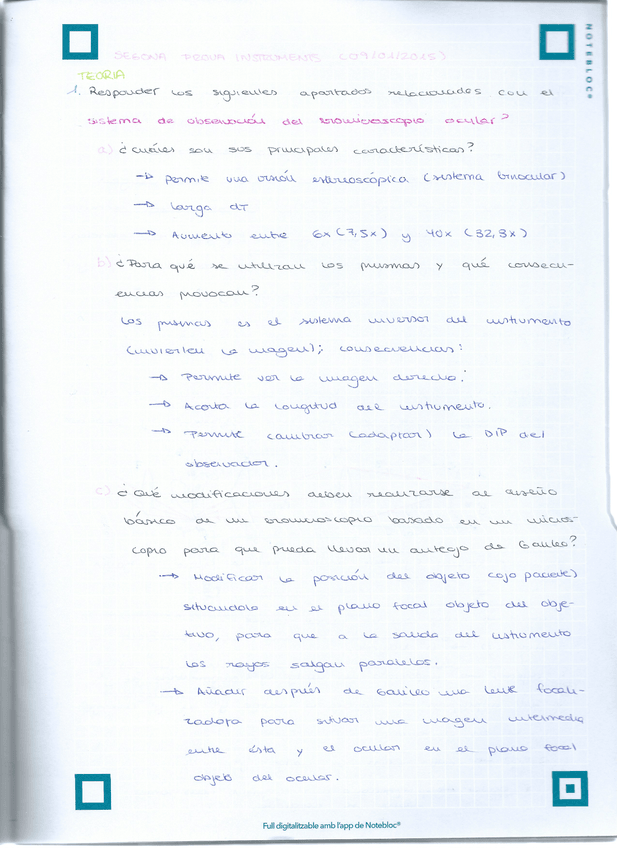 SEGONA PROVA INSTRUMENTS (09/01/2015)
TEORIA
1. Responder los siguientes apartados relacionados con el
sistema de observación del biomicroscopio ocular?
a) ¿cuáles son sus principales características?
→ Permite una visión estereoscópica (sistema binocular)
→ Larga dT
→ Aumento entre 6x (7,5x) y 40x (32,3x)
b) ¿Para qué se utilizan los prismas y qué consecu-
encias provocan?
Los prismas es el sistema inversor del instrumento
(invierten la imagen); consecuencias:
→ Permite ver la imagen derecha.
→ Acorta la longitud del instrumento.
→ Permite cambiar (adaptar) la DIP del
observador.
c) ¿Qué modificaciones deben realizarse al diseño
básico de un biomicroscopio basado en un micros-
copio para que pueda llevar un anteojo de Galileo?
→ Modificar la posición del objeto (ojo paciente)
situandolo en el plano focal objeto del obje-
tivo, para que a la salida del instrumento
los rayos salgan paralelos.
→ Añadir después de Galileo una lente focali-
zadora para situar una imagen intermedia
entre ésta y el ocular en el plano focal
objeto del ocular.
NOTEBLOC®
Full digitalitzable amb l'app de Notebloc®